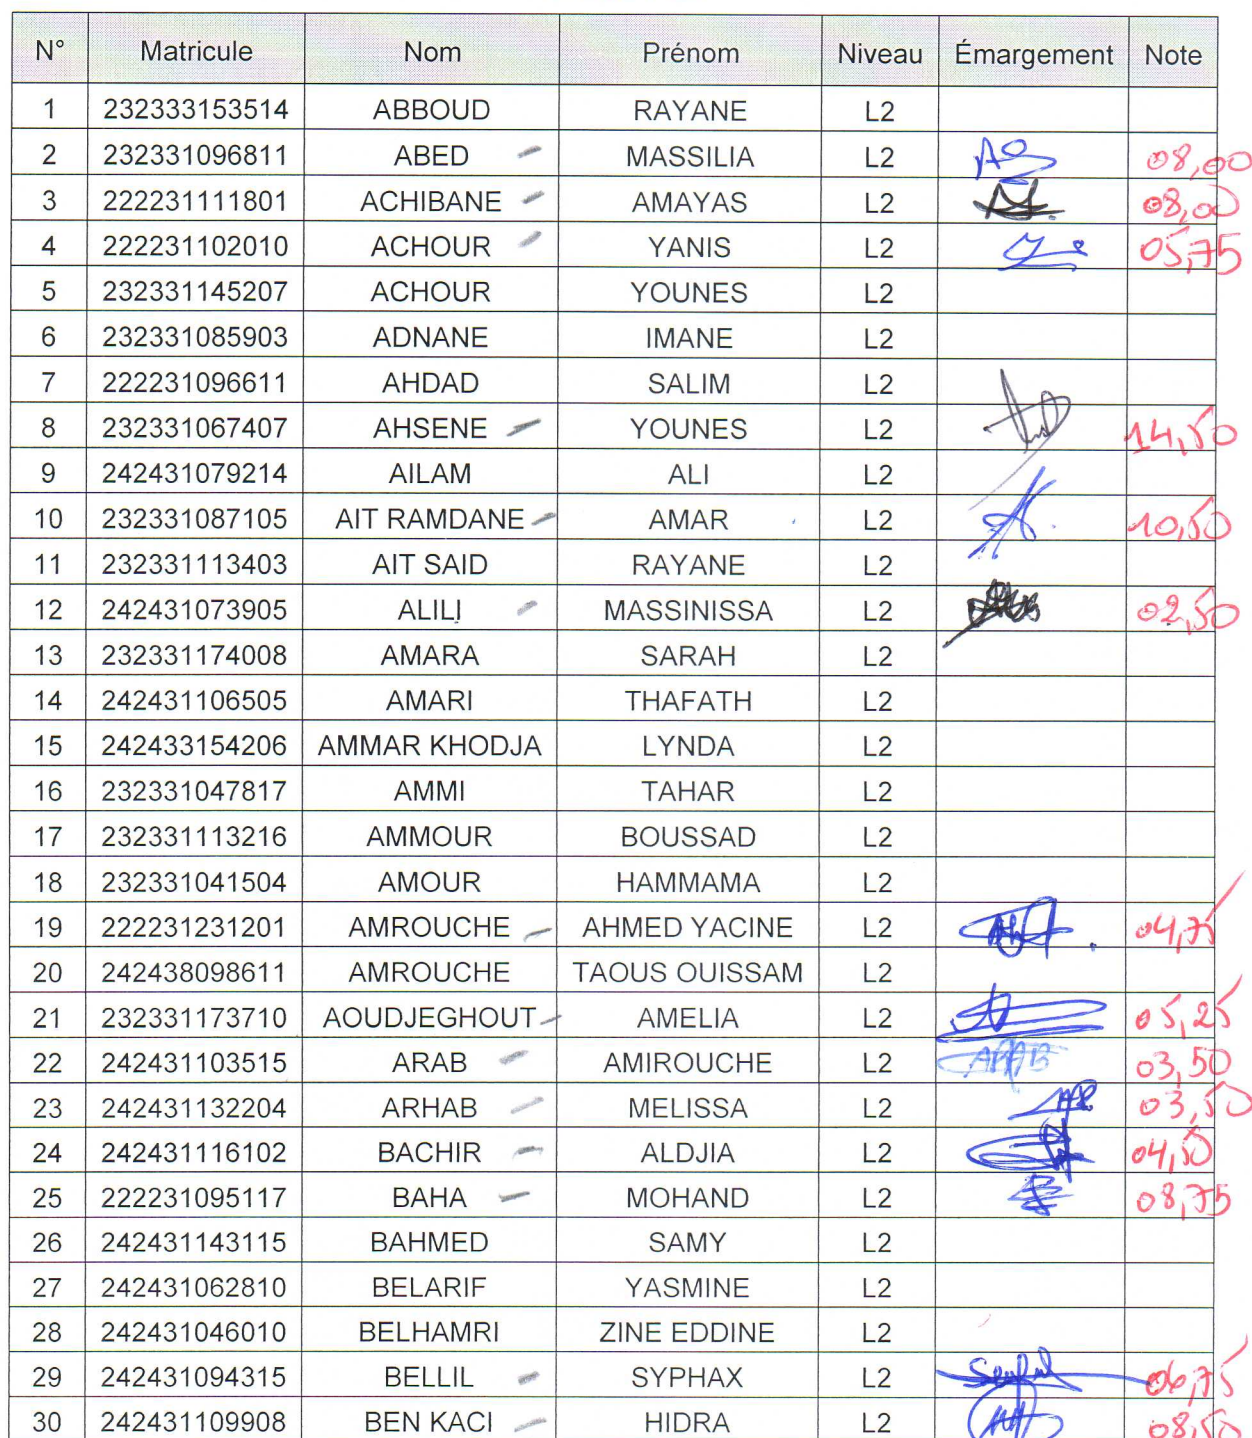 N° Matricule Nom Prénom Niveau Émargement Note
1 232333153514 ABBOUD RAYANE L2
2 232331096811 ABED MASSILIA L2 08,00
3 222231111801 ACHIBANE AMAYAS L2 08,00
4 222231102010 ACHOUR YANIS L2 05,75
5 232331145207 ACHOUR YOUNES L2
6 232331085903 ADNANE IMANE L2
7 222231096611 AHDAD SALIM L2
8 232331067407 AHSENE YOUNES L2 14,50
9 242431079214 AILAM ALI L2
10 232331087105 AIT RAMDANE AMAR L2 10,50
11 232331113403 AIT SAID RAYANE L2
12 242431073905 ALILI MASSINISSA L2 02,50
13 232331174008 AMARA SARAH L2
14 242431106505 AMARI THAFATH L2
15 242433154206 AMMAR KHODJA LYNDA L2
16 232331047817 AMMI TAHAR L2
17 232331113216 AMMOUR BOUSSAD L2
18 232331041504 AMOUR HAMMAMA L2
19 222231231201 AMROUCHE AHMED YACINE L2 04,75
20 242438098611 AMROUCHE TAOUS OUISSAM L2
21 232331173710 AOUDJEGHOUT AMELIA L2 05,25
22 242431103515 ARAB AMIROUCHE L2 ARAB 03,50
23 242431132204 ARHAB MELISSA L2 03,50
24 242431116102 BACHIR ALDJIA L2 04,50
25 222231095117 BAHA MOHAND L2 08,75
26 242431143115 BAHMED SAMY L2
27 242431062810 BELARIF YASMINE L2
28 242431046010 BELHAMRI ZINE EDDINE L2
29 242431094315 BELLIL SYPHAX L2 06,75
30 242431109908 BEN KACI HIDRA L2 08,50